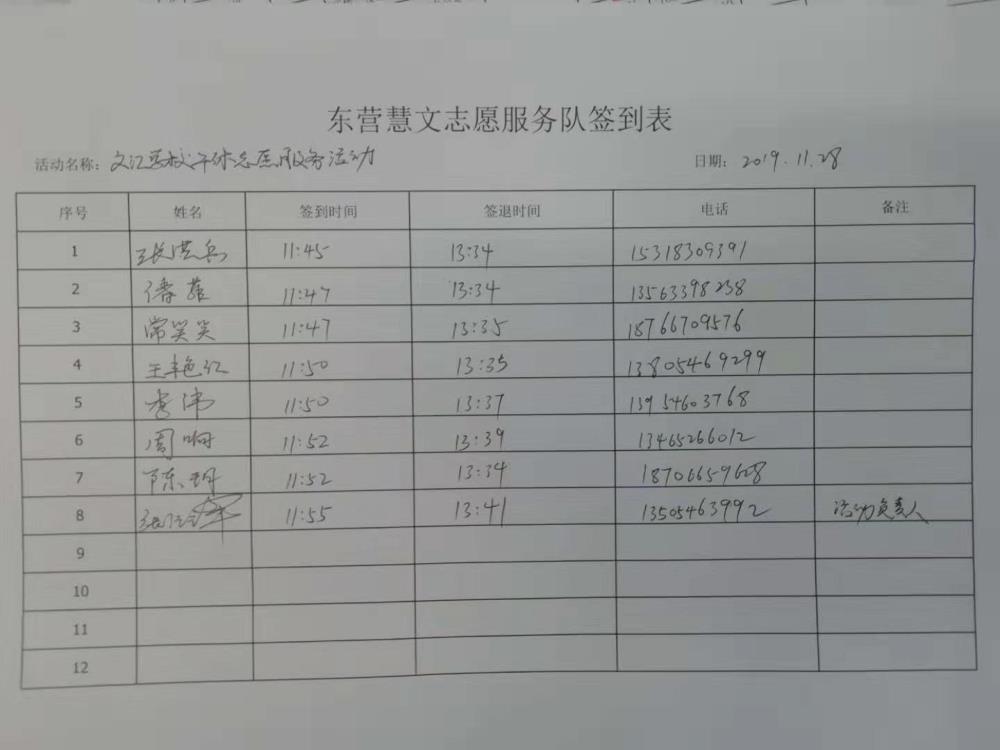 东营慧文志愿服务队签到表
活动名称：文汇学校午休志愿服务活动 日期：2019.11.28
序号 姓名 签到时间 签退时间 电话 备注
1 张洪兵 11:45 13:34 15318309391
2 潘蕾 11:47 13:34 13563398238
3 常笑笑 11:47 13:35 18766709576
4 王艳红 11:50 13:35 13805469299
5 李伟 11:50 13:37 13954603768
6 周响 11:52 13:39 13465266012
7 陈玥 11:52 13:34 18706659628
8 11:55 13:41 13505463992 活动负责人
9
10
11
12